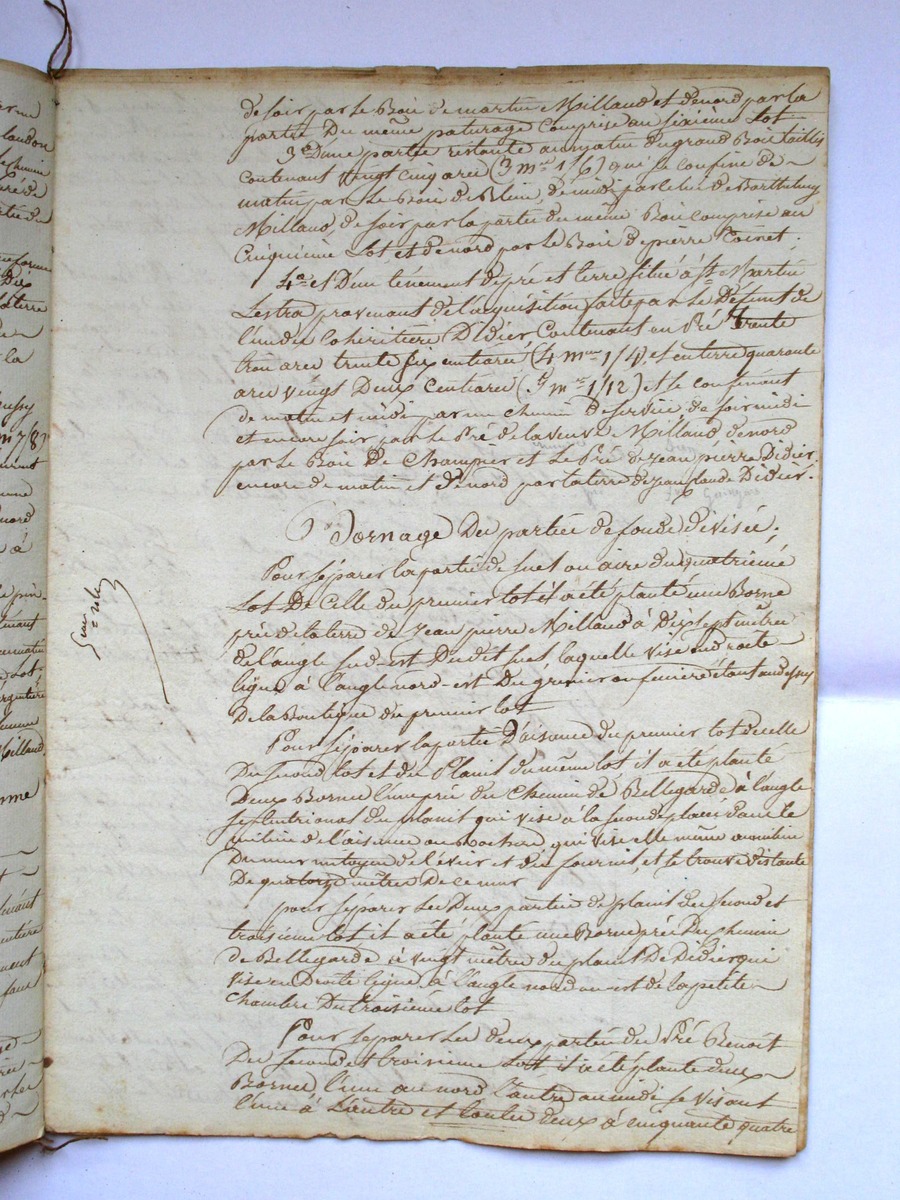 de soir par le Bois de martin Milland et de nord par la
partie Du même paturage comprise au sixieme Lot
3° D'une partie restante au matin du grand Bois taillis
contenant vingt cinq ares (3 mres 1/6) qui se confine de
matin par Le Bois de Blein, de midi par celui de Barthelemy
Milland, de soir par la partie du même Bois comprise au
Cinquieme Lot et de nord par le Bois de pierre Coinet;
4° et D'un ténement de pré et terre situé à St Martin
Lestra provenant de l'acquisition faite par le Défunt de
l'un des Cohéritiers Didier, Contenant en Pré trente
trois ares trente six centiares (4 mres 1/4) et en terre quarante
ares vingt Deux centiares (5 mres 1/12) et se confinent
de matin et midi par un chemin de service, de soir midi
et encore soir par le Pré de la veuve Milland de nord
par le Bois De Champier et Le Pré de Jean pierre Didier,
encore de matin et de nord par la terre de Jean Claude Didier.
Bornage Des parties de fonds divisés;
Pour séparer la partie de suel ou aire du quatrième
Lot De Celle du premier lot il a été planté une Borne
près de la terre de Jean pierre Milland à Dix sept mètres
de l'angle sud-est Du dit suel, laquelle vise en droite
ligne à l'angle nord-est Du grenier ou fenière étant au dessus
De la Boutique du premier lot
Pour séparer la partie D'aisance du premier lot de celle
Du second lot et du Plait du même lot il a été planté
Deux Bornes l'une près du Chemin de Bellegarde à l'angle
septentrional du plait qui vise à la seconde placée dans le
milieu de l'aisance au Rocher, qui vise elle même au milieu
Du mur mitoyen de l'évier et du fournil, et se trouve distante
De quatorze mètres De ce mur
pour séparer Les Deux parties de plait des second et
troisieme lot il a été planté une Borne près Du chemin
de Bellegarde à vingt mètres du plait De Didier qui
vise en Droite ligne à l'angle nord ouest de la petite
Chambre Du troisieme lot
Pour separer Les deux parties du Pré Benoit
Du second et troisieme Lot il a été planté deux
Bornes l'une au nord l'autre au midi se visant
l'une à L'autre et toutes deux à cinquante quatre